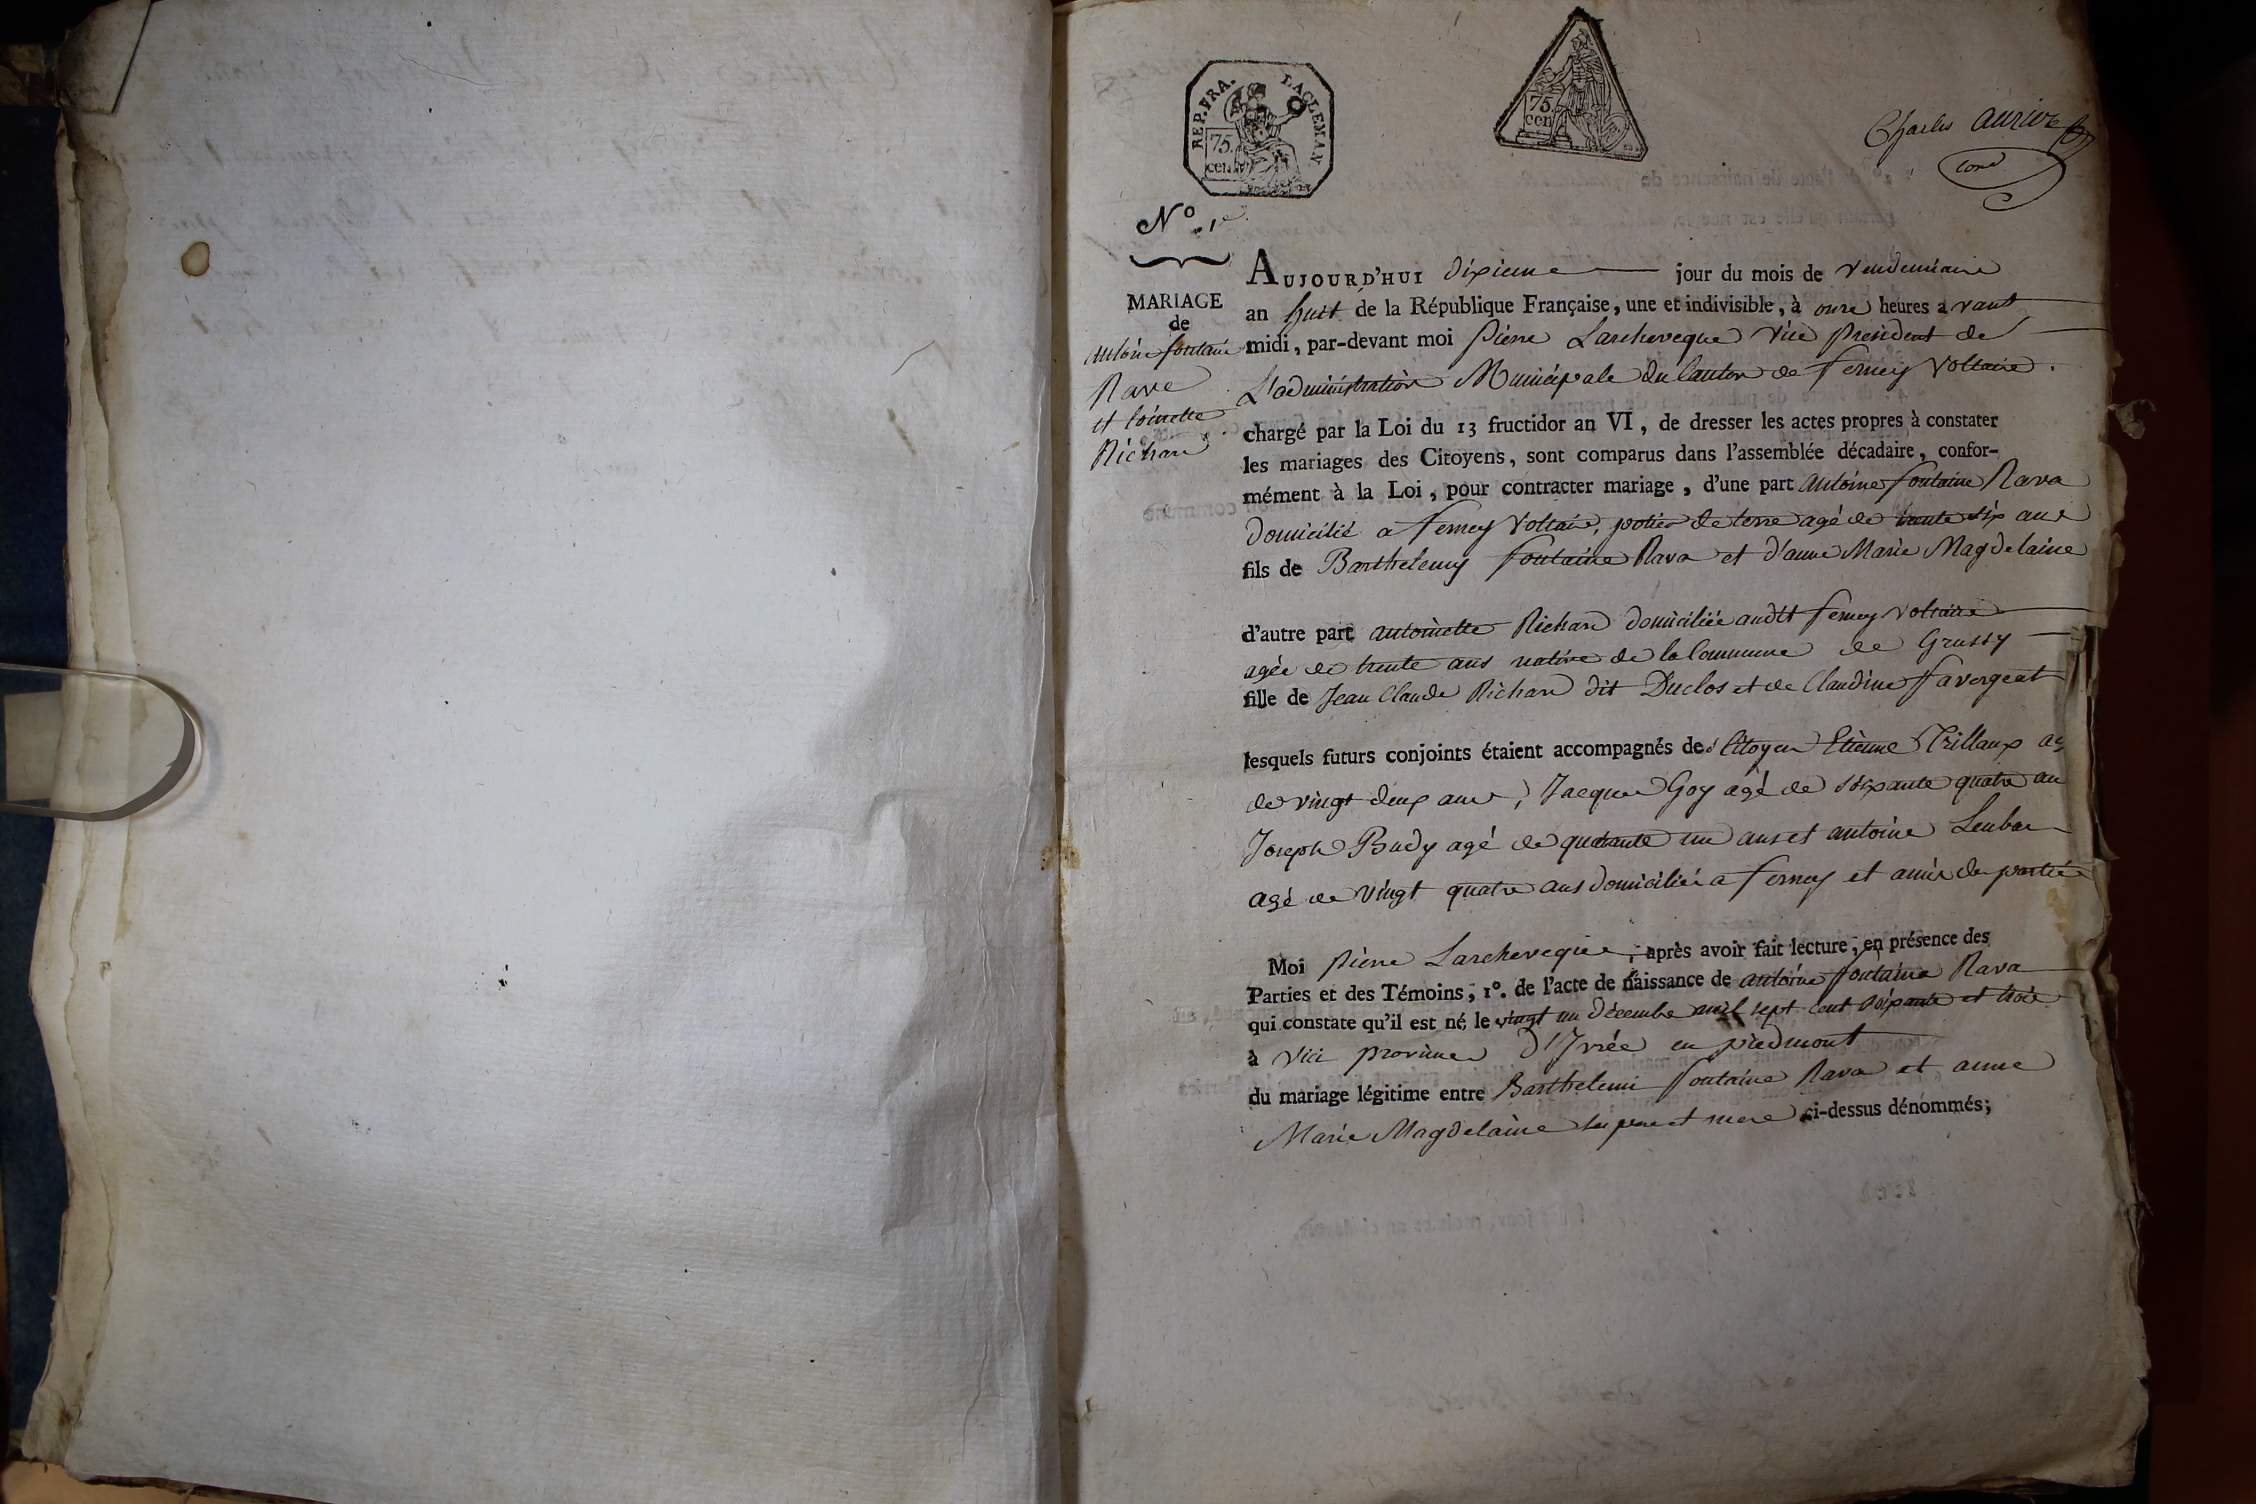 REP. FRA.
75.
cen.
75.
cen
Charles
N.º 1er
MARIAGE
de
antoine fontaine
Rave
et toinette
Richard
AUJOURD'HUI dixieme jour du mois de Vendemiaire
an huit de la République Française, une et indivisible, à onze heures avant
midi, par-devant moi pierre Larcheveque Vice president de
L'administration Municipale du Canton de ferney Voltaire.
chargé par la Loi du 13 fructidor an VI, de dresser les actes propres à constater
les mariages des Citoyens, sont comparus dans l'assemblée décadaire, confor-
mément à la Loi, pour contracter mariage, d'une part antoine fontaine Rava
domicilié a ferney Voltaire, potier de terre agé de trente six ans
fils de Barthelemy fontaine Rava et d'anne Marie Magdelaine
d'autre part antoinette Richard domiciliée audit ferney Voltaire
agée de trente ans native de la Commune de Grussy
fille de Jean Claude Richard dit Duclos et de Claudine favergeat
lesquels futurs conjoints étaient accompagnés de Citoyen Etienne Trillaux ag
de vingt deux ans, Jacques Goy agé de soixante quatre an
Joseph Budy agé de quarante un ans et antoine
agé de vingt quatre ans domiciliés a ferney et amis des parties
Moi pierre Larcheveque, après avoir fait lecture, en présence des
Parties et des Témoins, 1º. de l'acte de naissance de antoine fontaine Rava
qui constate qu'il est né le vingt un décembre mil sept cent soixante et trois
à Vici province d'Ivrée en piedmont
du mariage légitime entre Barthelemi fontaine Rava et anne
Marie Magdelaine ses pere et mere ci-dessus dénommés;